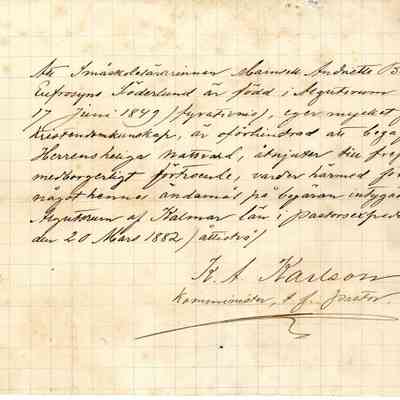 Att Småskolelärarinnan Mamsell Andriette B
Eufrosyne Söderlund är född i Algutsrum
17 Juni 1849 (fyrationio), eger mycket
Kristendomskunskap, är oförhindrad att begå
Herrens heliga Nattvard, åtnjuter till frejd
medborgerligt förtroende, varder härmed för
något hennes ändamål på begäran intygadt
Algutsrum af Kalmar län i pastorsexped
den 20 Mars 1882 (åttiotvå)
K. A. Karlson
Komminister, t. f. pastor.